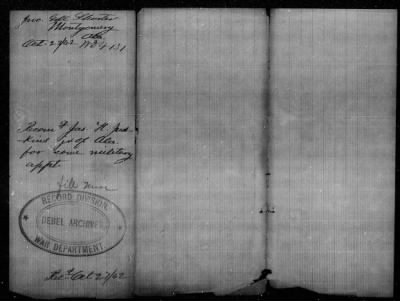 Jno. Gill Shorter
Montgomery
Ala
Oct. 27/62
Recom^d Jas. H. Jud-
kins jr of Ala.
for some military
appt.
file
RECORD DIVISION
REBEL ARCHIVES
WAR DEPARTMENT
Rec^d Oct 27/62